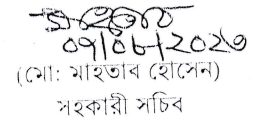 ০৭/০৮/২০২৩
(মো: মাহতাব হোসেন)
সহকারী সচিব